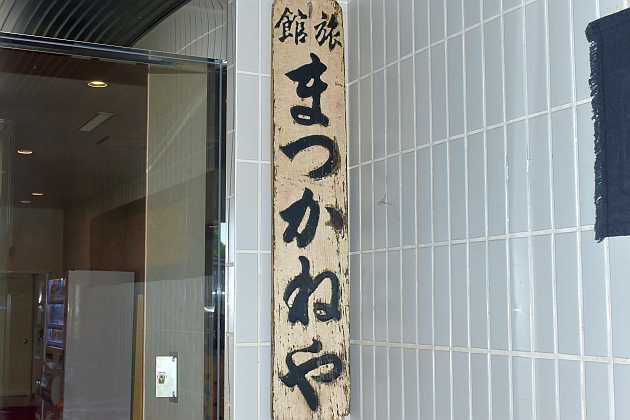 旅館
まつかねや